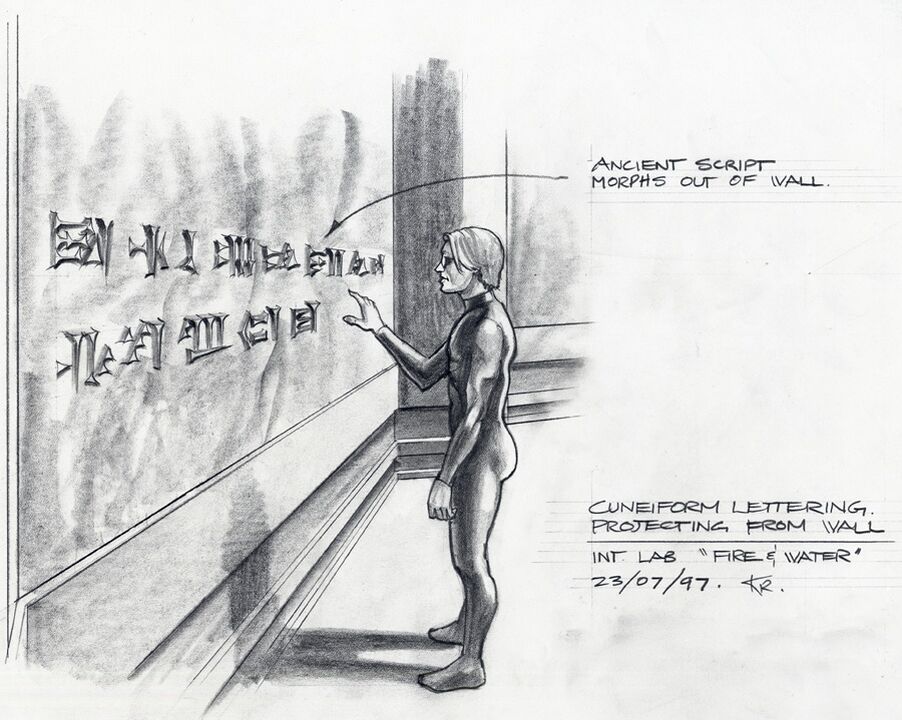 ANCIENT SCRIPT
MORPHS OUT OF WALL.
CUNEIFORM LETTERING.
PROJECTING FROM WALL
INT. LAB "FIRE & WATER"
23/07/97. KR.